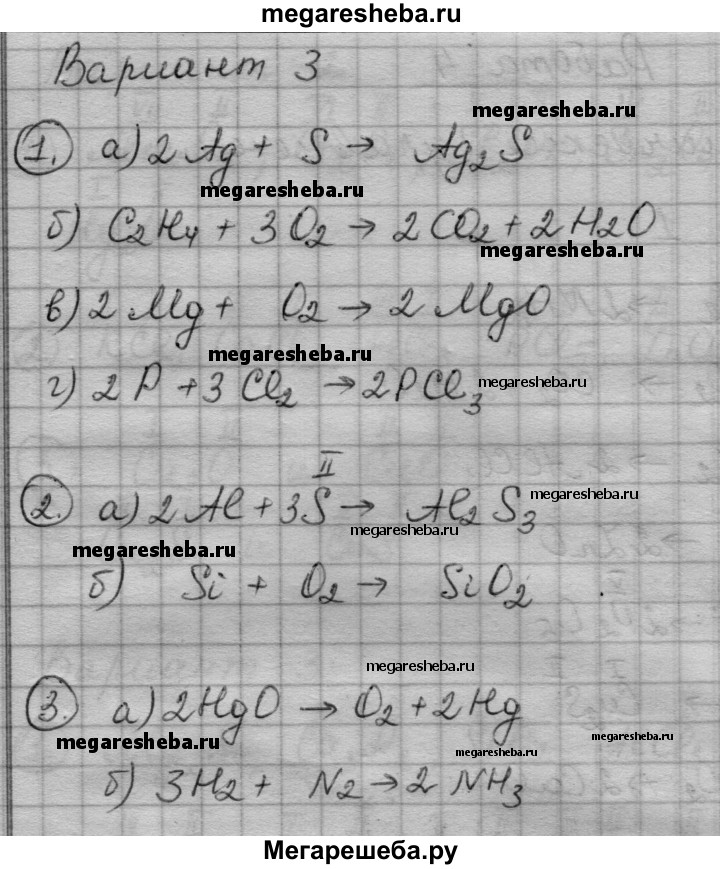 megaresheba.ru
Вариант 3
megaresheba.ru
1. а) 2Ag + S → Ag₂S
megaresheba.ru
б) C₂H₄ + 3O₂ → 2CO₂ + 2H₂O
megaresheba.ru
в) 2Mg + O₂ → 2MgO
megaresheba.ru
г) 2P + 3Cl₂ → 2PCl₃
megaresheba.ru
II
2. а) 2Al + 3S → Al₂S₃
megaresheba.ru
megaresheba.ru
megaresheba.ru
б) Si + O₂ → SiO₂
megaresheba.ru
3. а) 2HgO → O₂ + 2Hg
megaresheba.ru
megaresheba.ru
megaresheba.ru
б) 3H₂ + N₂ → 2NH₃
Мегарешеба.ру